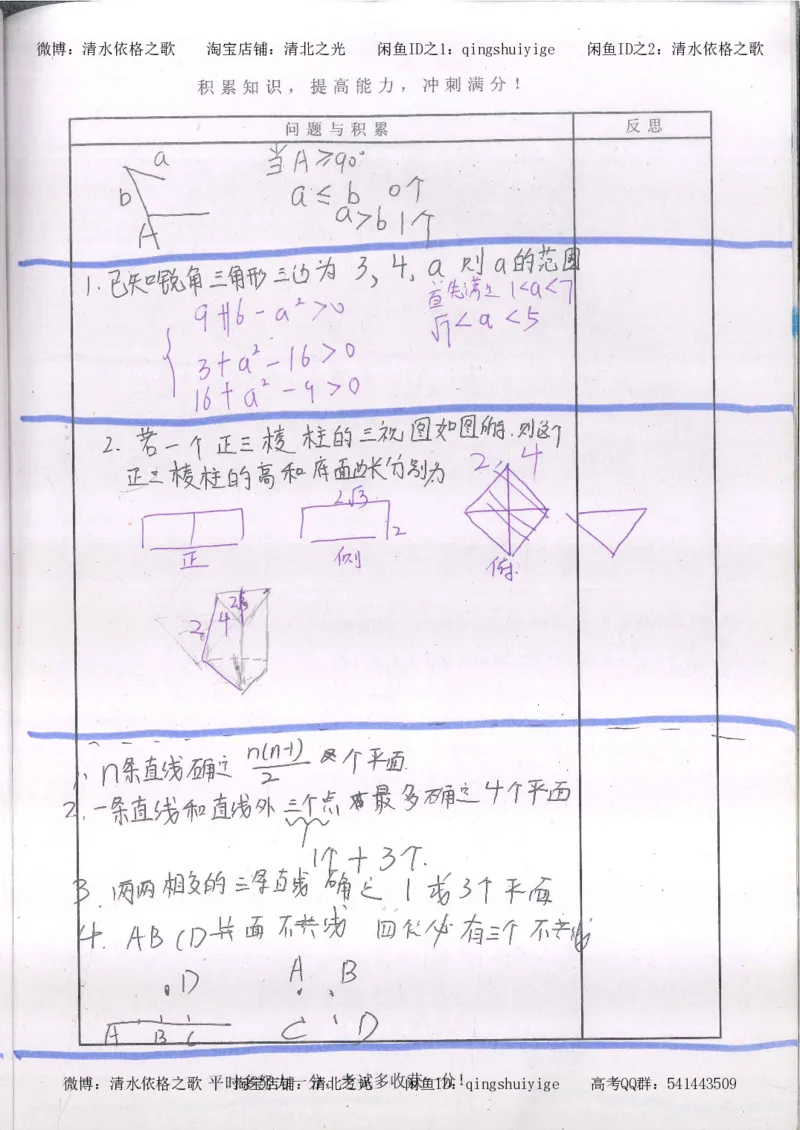 微博：清水依格之歌 淘宝店铺：清北之光 闲鱼ID之1：qingshuiyige 闲鱼ID之2：清水依格之歌
积累知识，提高能力，冲刺满分！
问题与积累 反思
a 当A≥90°
b a≤b 0个
A a>b 1个
1.已知锐角三角形三边为 3, 4, a 则a的范围
首先满足 1<a<7
9+16-a²>0
√7<a<5
3+a²-16>0
16+a²-9>0
2. 若一个正三棱柱的三视图如图所示.则这个
正三棱柱的高和底面边长分别为
2 4
2√3
2
正 侧 俯
2 4 2√3
1. n条直线确定 n(n-1)/2 个平面.
2. 一条直线和直线外三个点最多确定4个平面
1个+3个.
3. 两两相交的三条直线确定 1或3个平面
4. ABCD共面不共线 四点必有三个不共线
D A B
A B C C D
微博：清水依格之歌 淘宝店铺：清北之光 闲鱼ID：qingshuiyige 高考QQ群：541443509
考试多收获一分！